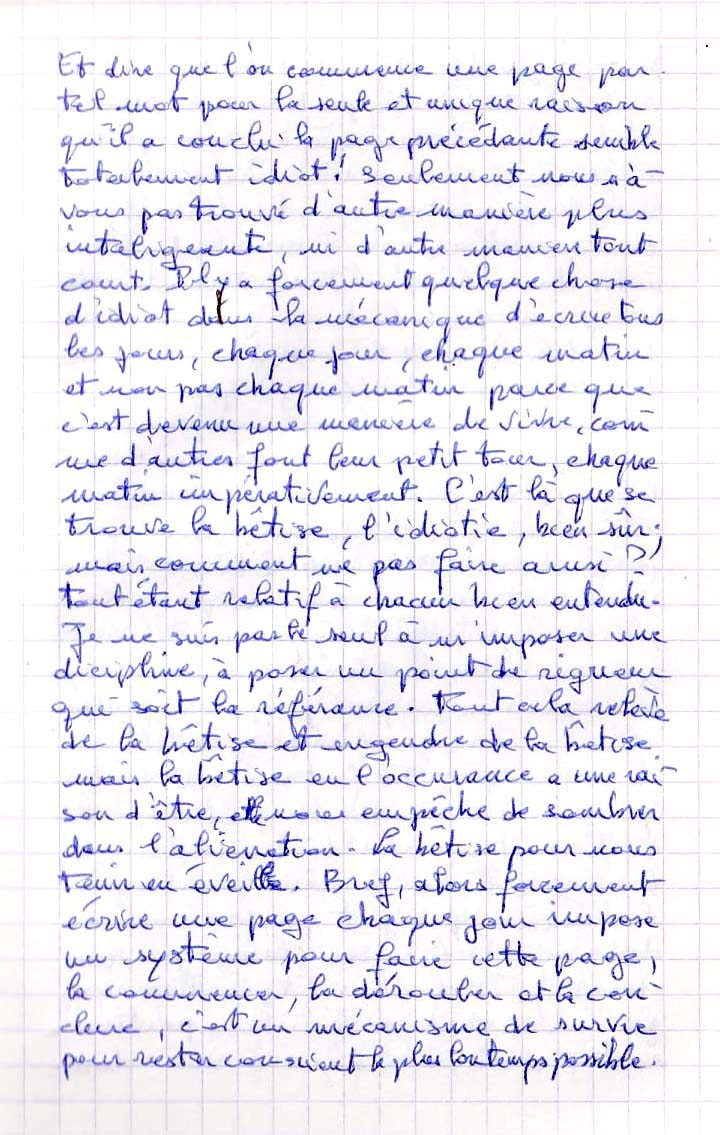 Et dire que l'on commence une page par
tel mot pour la seule et unique raison
qu'il a conclu la page précédante semble
totalement idiot! Seulement nous n'a-
vons pas trouvé d'autre manière plus
inteligeante, ni d'autre manière tout
court. Il y a forcement quelque chose
d'idiot dans la mécanique d'écrire tous
les jours, chaque jour, chaque matin
et non pas chaque matin parce que
c'est devenu une manière de vivre, com-
me d'autres font leur petit tour, chaque
matin impérativement. C'est là que se
trouve la bêtise, l'idiotie, bien sûr,
mais comment ne pas faire ainsi ?
tout étant relatif à chacun bien entendu.
Je ne suis pas le seul à m'imposer une
dicipline, à poser un point de rigueur
qui soit la référance. Tout cela relève
de la bêtise et engendre de la bêtise
mais la bêtise en l'occurance a une rai-
son d'être, elle nous empêche de sombrer
dans l'aliénation. La bêtise pour nous
tenir en éveil. Bref, alors forcement
écrire une page chaque jour impose
un système pour faire cette page,
la commencer, la dérouler et la con-
clure, c'est un mécanisme de survie
pour rester conscient le plus lontemps possible.